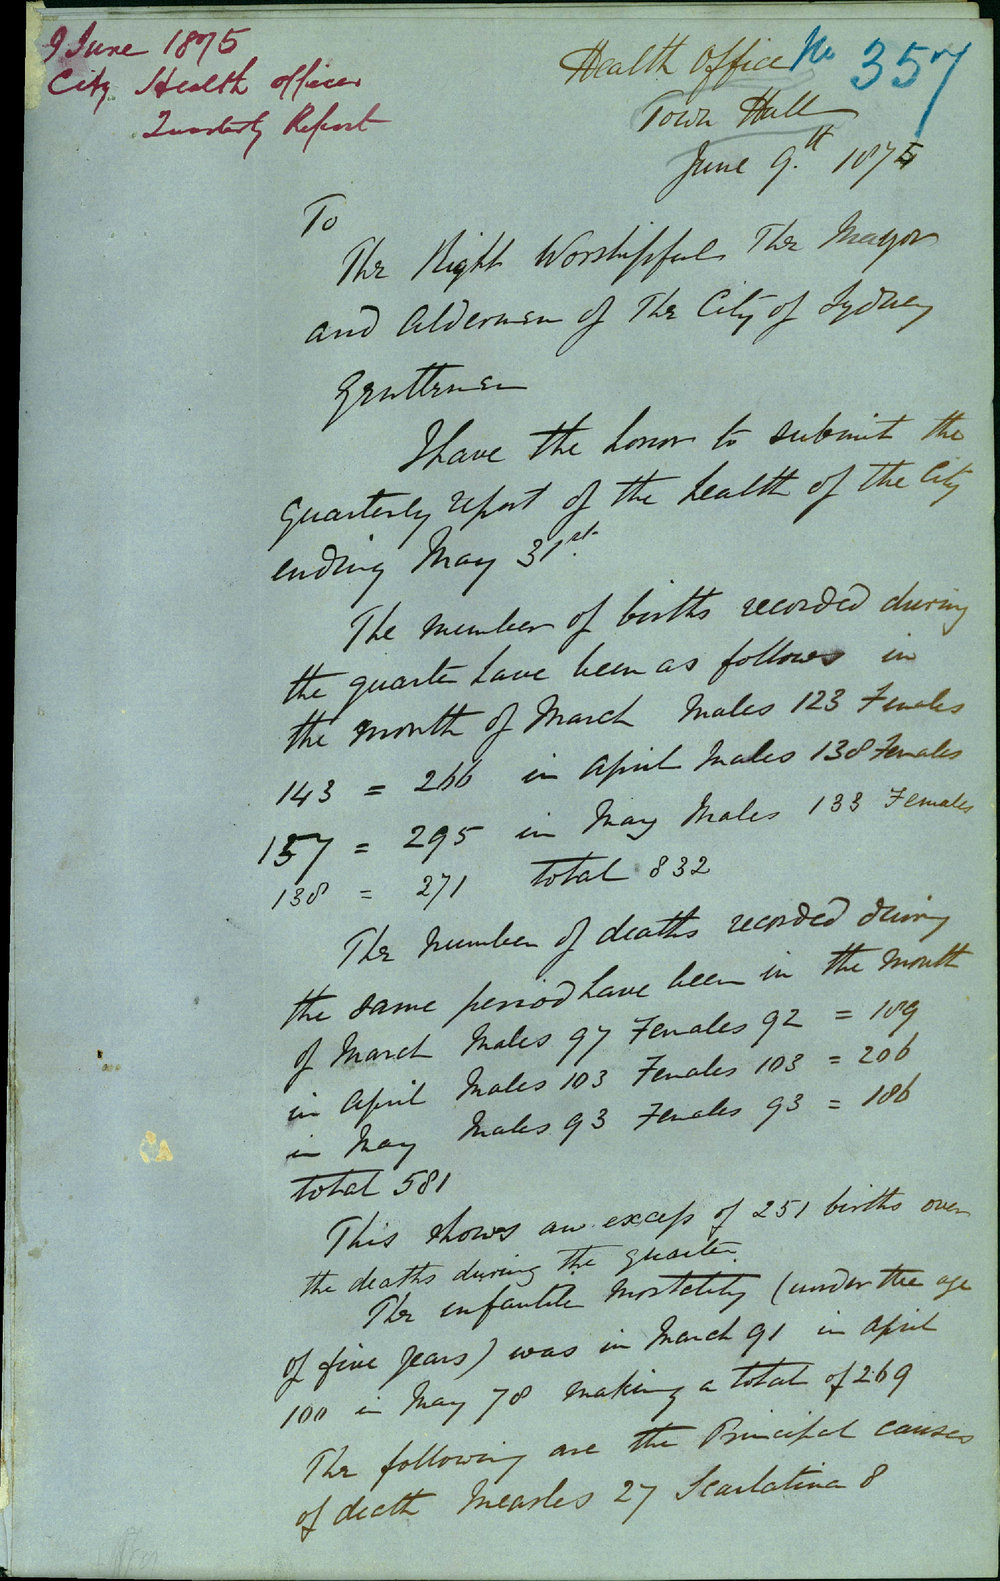 9 June 1875
City Health officer
Quarterly Report
No 357
Health Office
Town Hall
June 9.th 1875
To
The Right Worshipful The Mayor
and Aldermen of The City of Sydney
Gentlemen
I have the honor to submit the
quarterly report of the health of the City
ending May 31st.
The number of births recorded during
the quarter have been as follows in
the month of March Males 123 Females
143 = 266 in April Males 138 Females
157 = 295 in May Males 133 Females
138 = 271 total 832
The number of deaths recorded during
the same period have been in the month
of March Males 97 Females 92 = 189
in April Males 103 Females 103 = 206
in May Males 93 Females 93 = 186
total 581
This shows an excess of 251 births over
the deaths during the quarter.
The infantile mortality (under the age
of five years) was in March 91 in April
100 in May 78 making a total of 269
The following are the Principal causes
of death Measles 27 Scarlatina 8